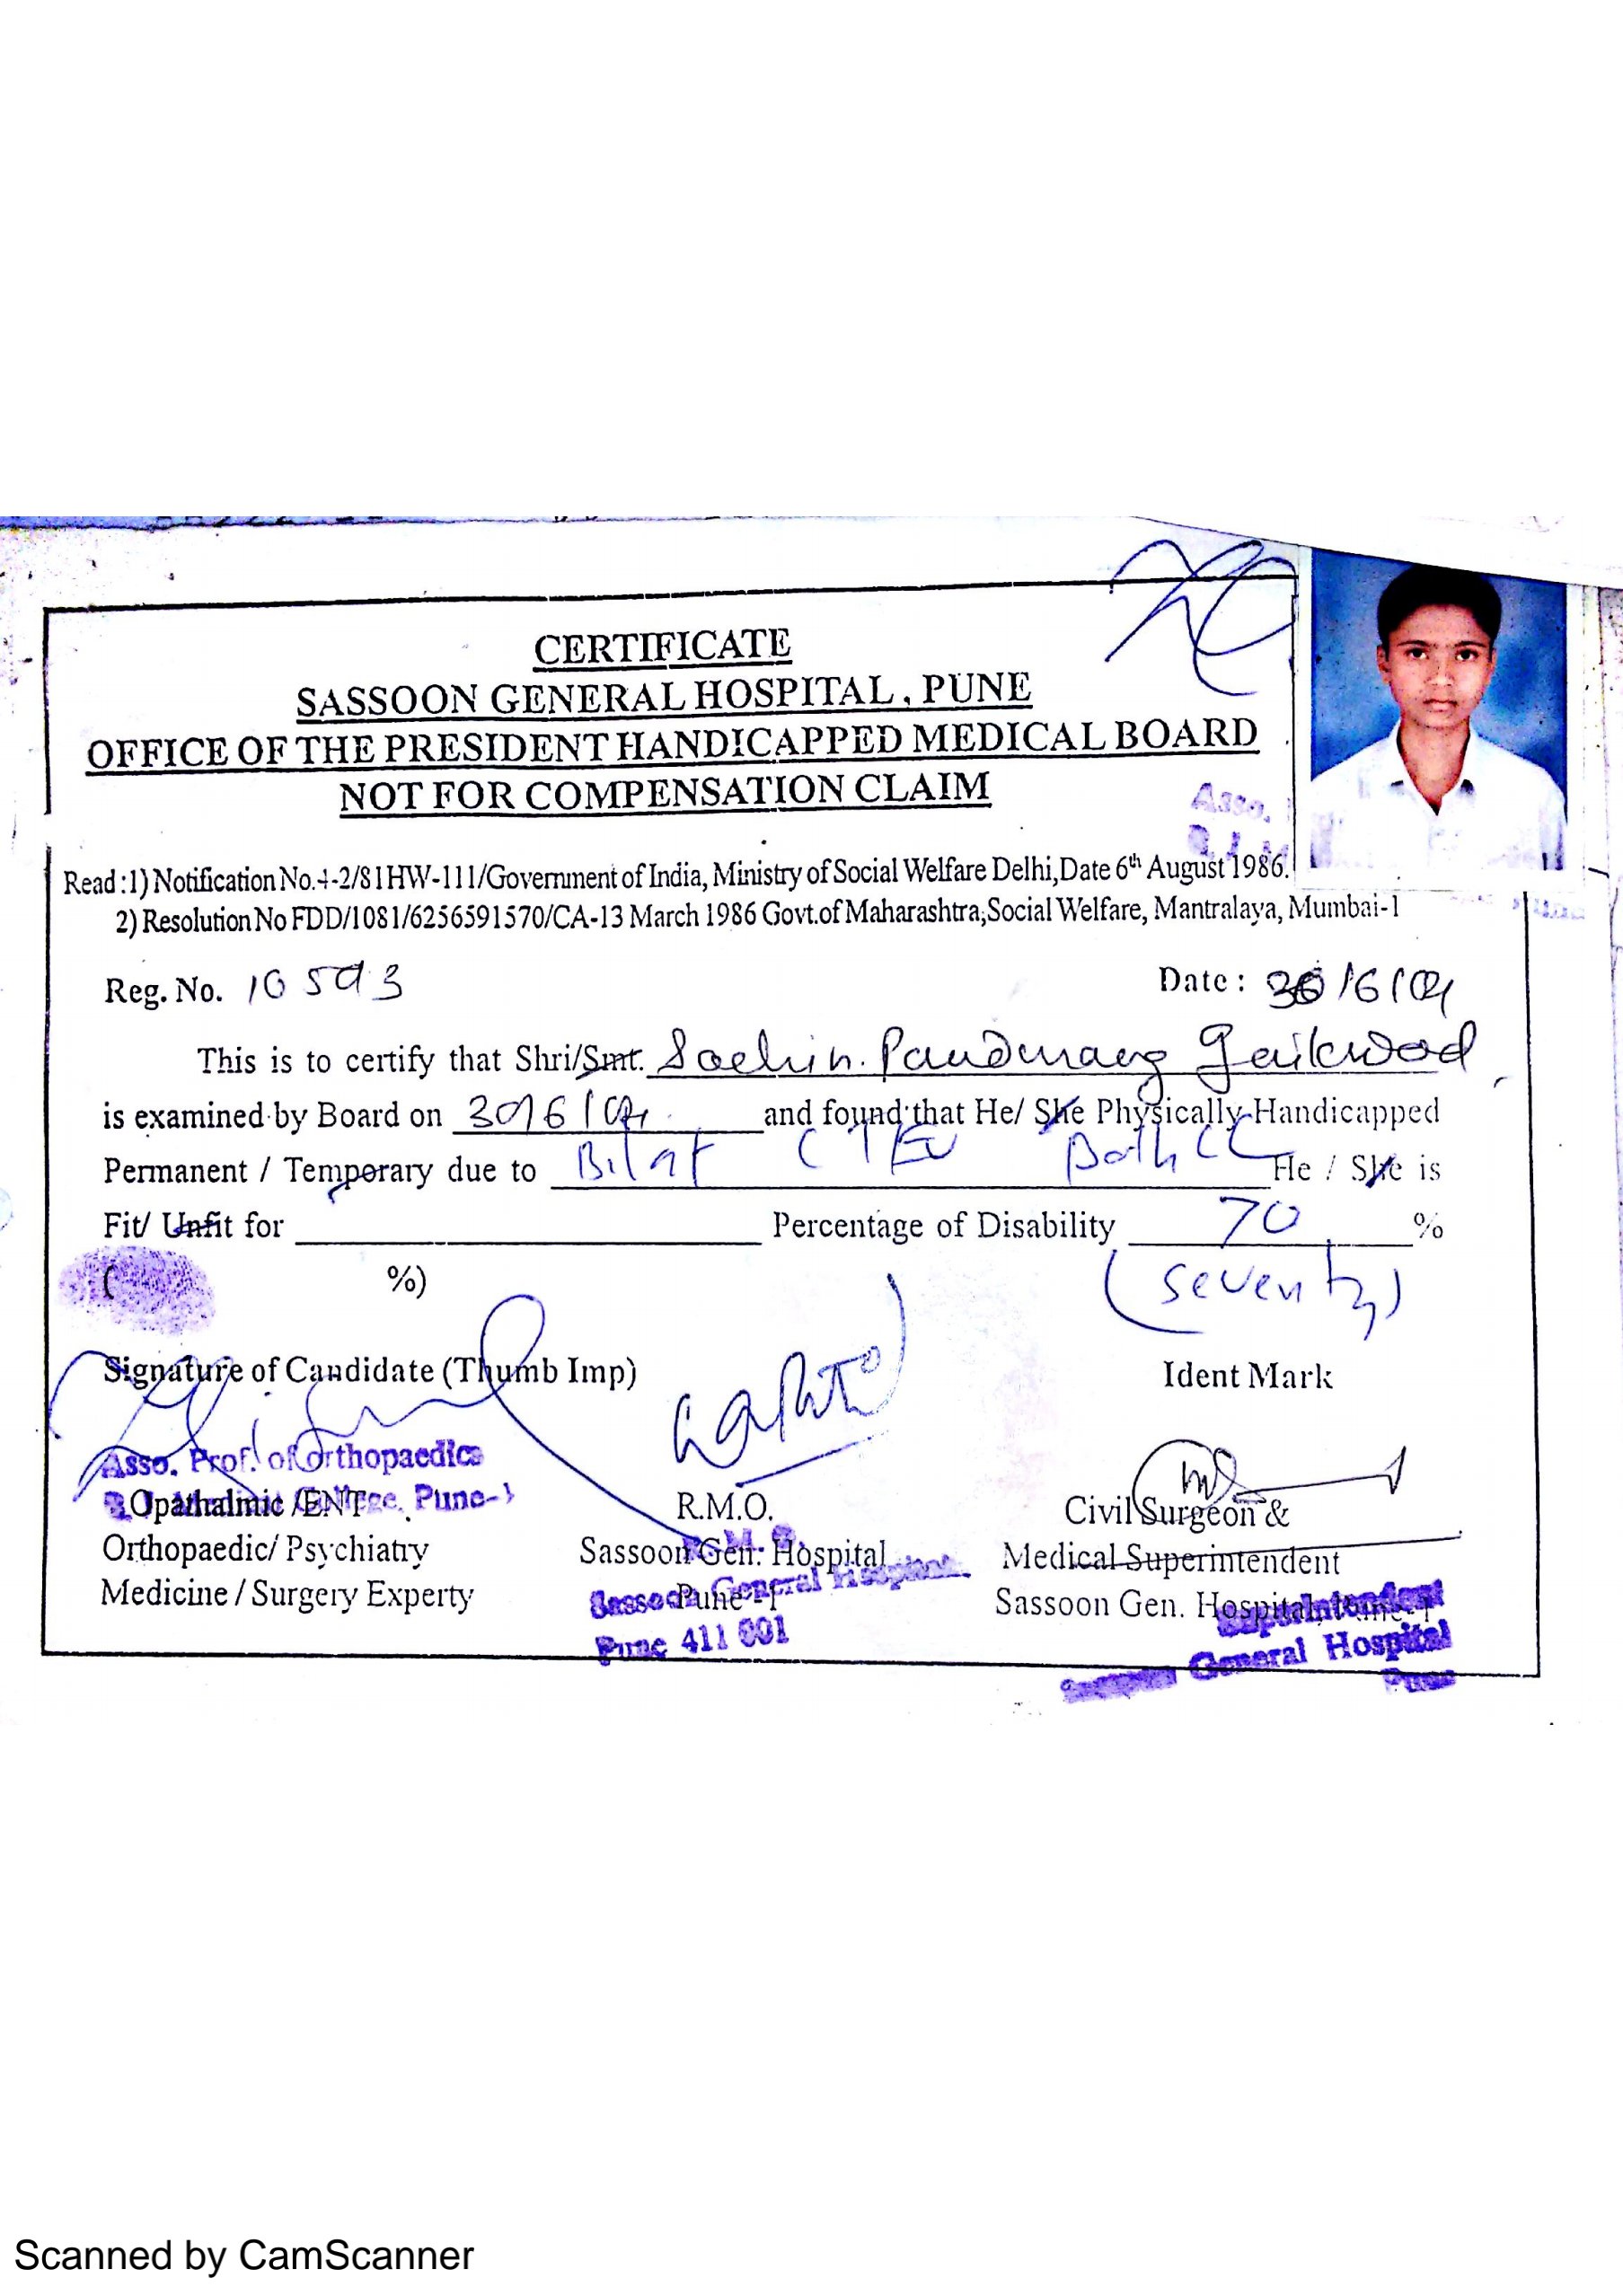 CERTIFICATE
SASSOON GENERAL HOSPITAL, PUNE
OFFICE OF THE PRESIDENT HANDICAPPED MEDICAL BOARD
NOT FOR COMPENSATION CLAIM
Asso.
Read :1) Notification No.4-2/81HW-111/Government of India, Ministry of Social Welfare Delhi, Date 6th August 1986.
2) Resolution No FDD/1081/6256591570/CA-13 March 1986 Govt.of Maharashtra,Social Welfare, Mantralaya, Mumbai-1
Reg. No. 10593 Date : 30/6/04
This is to certify that Shri/Smt. Sachin. Pandurang Gaikwad
is examined by Board on 30/6/04 and found that He/ She Physically Handicapped
Permanent / Temporary due to Bilat CTEV Both He / She is
Fit/ Unfit for Percentage of Disability 70 %
( %) (seventy)
Signature of Candidate (Thumb Imp) Ident Mark
Asso. Prof. of Orthopaedics
Opathalmic /ENT Pune-1 R.M.O. Civil Surgeon &
Orthopaedic/ Psychiatry Sassoon Gen. Hospital Medical Superintendent
Medicine / Surgery Experty Pune-1 Sassoon Gen. Hospital, Pune-1
Sassoon General Hospital
Pune 411 001
Superintendent
Sassoon General Hospital
Pune
Scanned by CamScanner